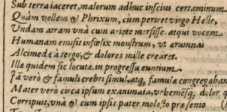 Sub terra iaceret, malorum adhuc inscius certaminum.
Quàm vellem & Phrixum, cum periret virgo Helle,
Undam atram unà cum ariete mersisse. atqui vocem
Humanam emisit infœlix monstrum, ut ærumnas
Alcimedæ à tergo, & dolores mille crearet.
Illa quidem sic locuta in progressu euntium.
Iã verò & famulicrebri simul, atq, famulæ congregabantur.
Mater verò circa ipsum exanimata, vehemẽsq, dolor quemq,
Corripuit, unà & cum ipsis pater molesto præ senio